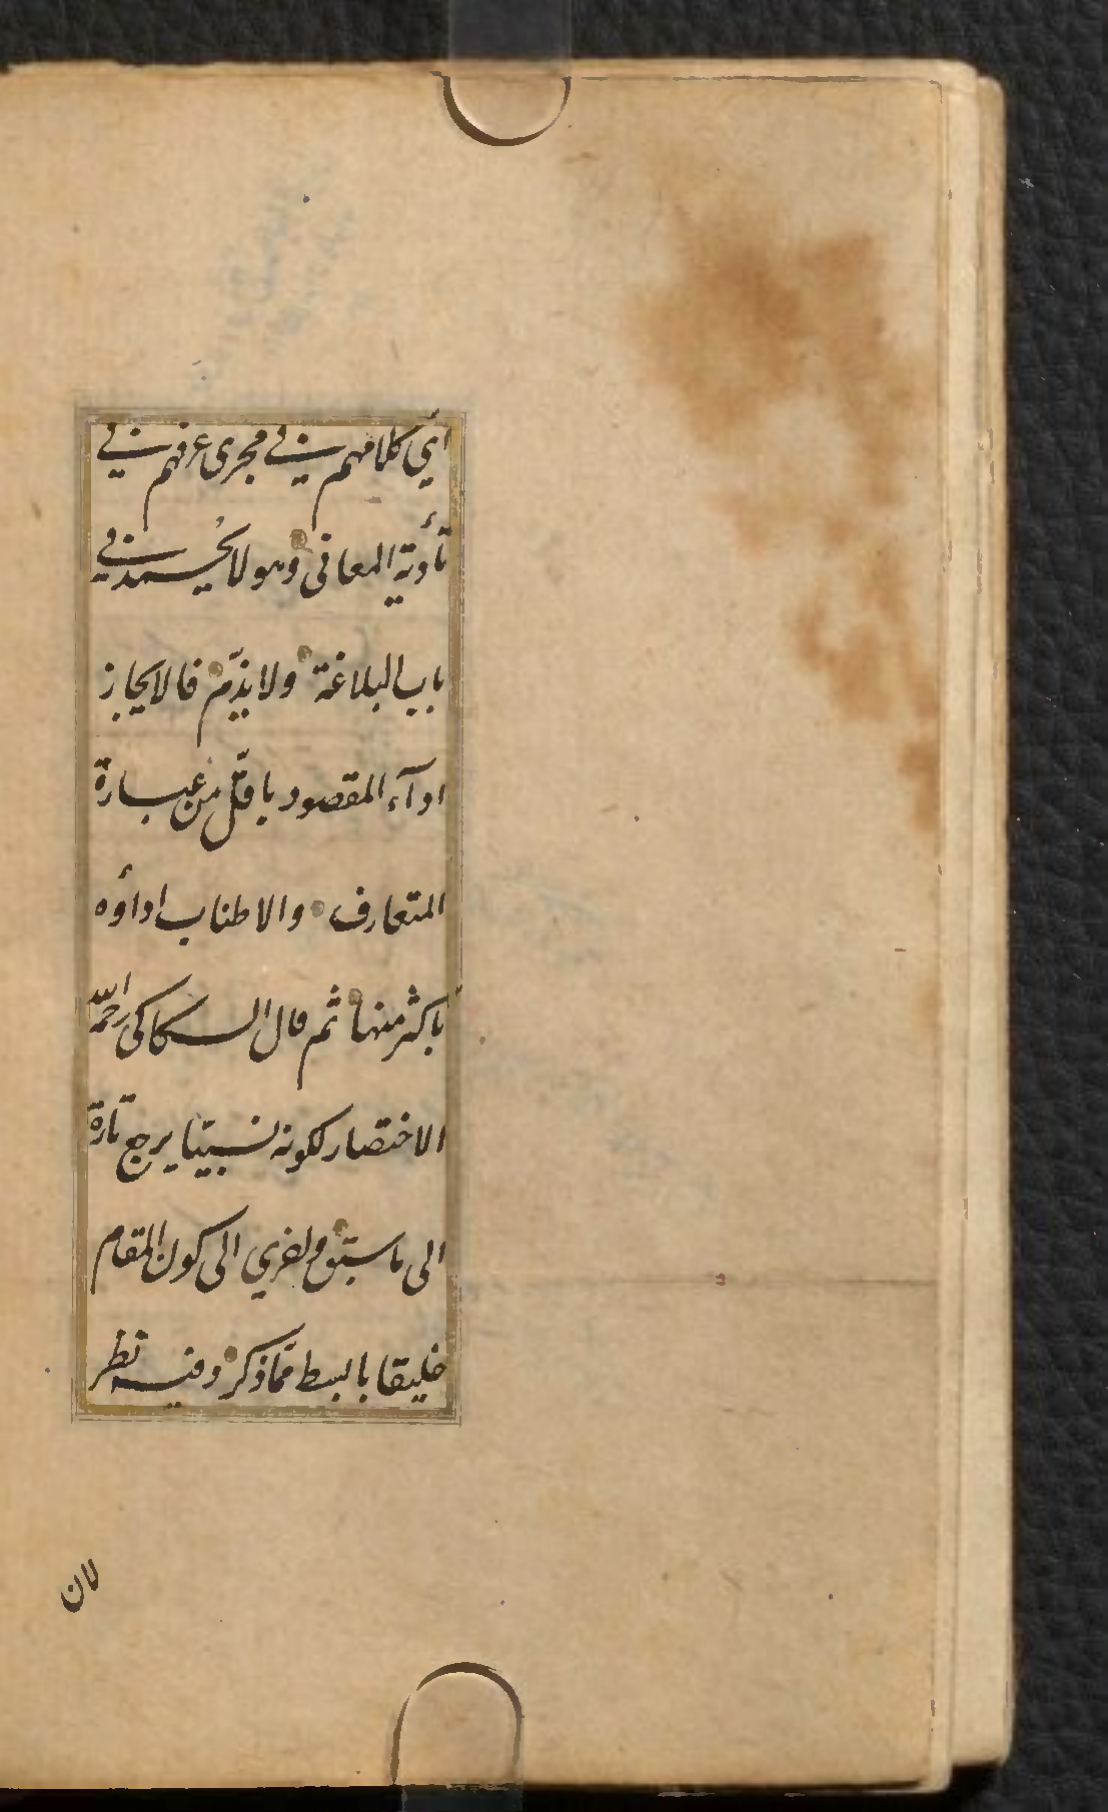 أي كلامهم في مجرى عرفهم في
تأدية المعانى وهو لا يُحمد في
باب البلاغة ولا يذمّ فالايجاز
ادآء المقصود باقلّ من عبارة
المتعارف والاطناب اداؤه
باكثر منها ثم قال السكاكى رحمه الله
الاختصار لكونه نسبيّا يرجع تارة
الى ما سبق واخرى الى كون المقام
خليقا بابسط ممّا ذكر وفيه نظر
لان